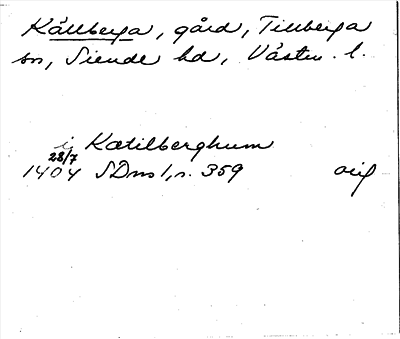 Källberga, gård, Tillberga
sn, Siende hd, Västm. l.
i Kætilberghum
28/7
1404 SDns 1, s. 359 orig